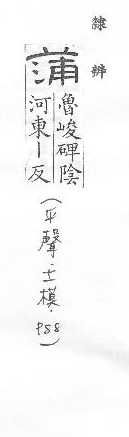 隸辨
蒲
魯峻碑陰
河東丨反
(平聲.十一模.P58)